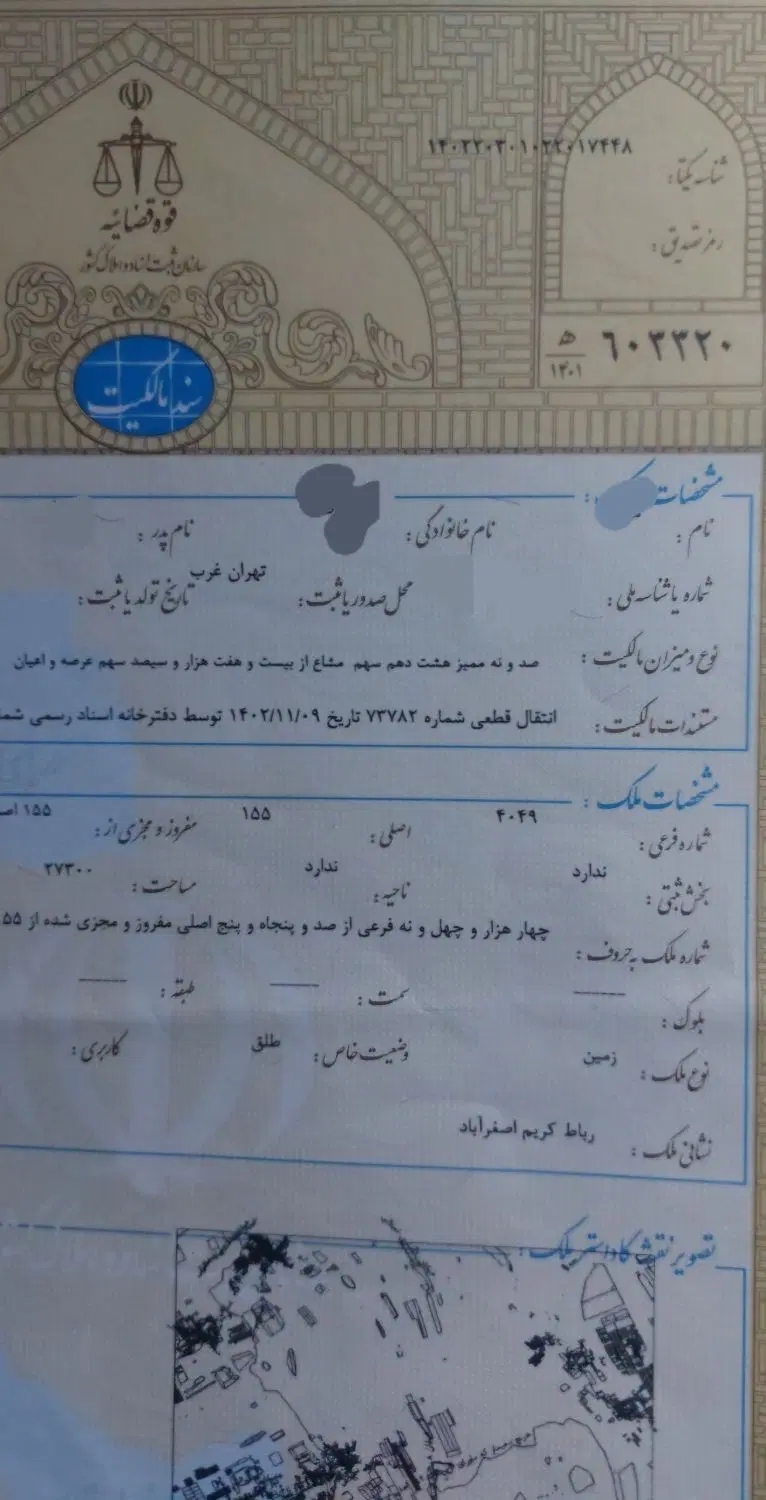 قوه قضائیه
سازمان ثبت اسناد و املاک کشور
سند مالکیت
شناسه یکتا: ۱۴۰۲۲۰۳۰۱۰۲۲۰۱۷۴۴۸
رمز تصدیق:
۶۰۳۳۲۰ ه‍ ۱۴۰۱
مشخصات :
نام: نام خانوادگی: نام پدر:
شماره یا شناسه ملی: محل صدور یا ثبت: تهران غرب تاریخ تولد یا ثبت:
نوع و میزان مالکیت: صد و نه ممیز هشت دهم سهم مشاع از بیست و هفت هزار و سیصد سهم عرصه و اعیان
مستندات مالکیت: انتقال قطعی شماره ۷۳۷۸۲ تاریخ ۱۴۰۲/۱۱/۰۹ توسط دفترخانه اسناد رسمی
مشخصات ملک:
شماره فرعی: ۴۰۴۹ اصلی: ۱۵۵ مفروز و مجزی از: ۱۵۵
بخش ثبتی: ندارد ناحیه: ندارد مساحت: ۲۷۳۰۰
شماره ملک به حروف: چهار هزار و چهل و نه فرعی از صد و پنجاه و پنج اصلی مفروز و مجزی شده از
بلوک: ------ سمت: ------ طبقه: ------
نوع ملک: زمین وضعیت خاص: طلق کاربری:
نشانی ملک: رباط کریم اصفرآباد
تصویر نقشه کاداستر ملک: